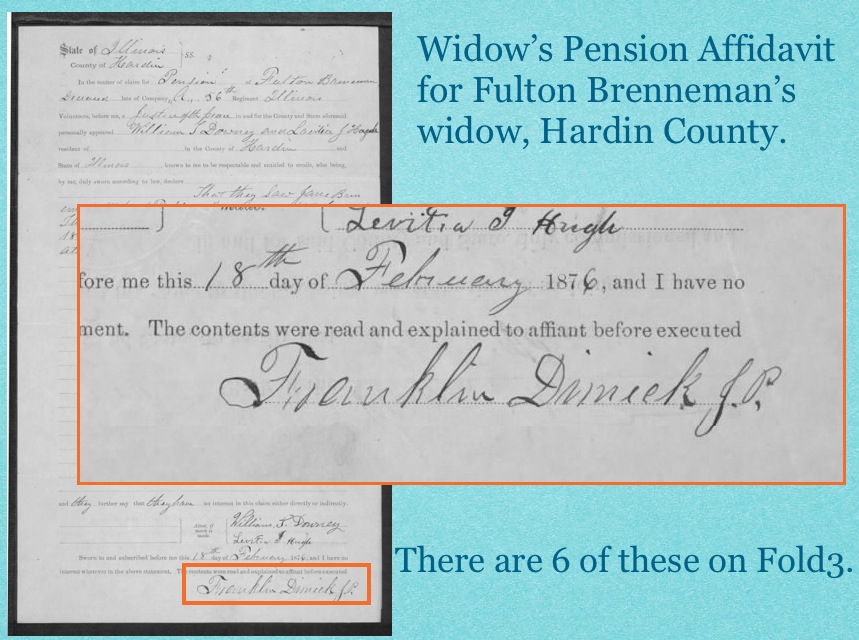 State of Illinois } SS.
County of Hardin
In the matter of claim for Pension of Fulton Brenneman
Deceased late of Company A, 56th Regiment Illinois
Volunteers, before me, a Justice of the peace in and for the County and State aforesaid
personally appeared William S Downey and Levitia J Hugh
resident of in the County of Hardin and
State of Illinois, known to me to be respectable and entitled to credit, who being,
by me, duly sworn according to law, declare
That they Saw Jane Bren
Widow's Pension Affidavit
for Fulton Brenneman's
widow, Hardin County.
Levitia J Hugh
fore me this 18th day of February 1876, and I have no
ment. The contents were read and explained to affiant before executed
Franklin Dimick J.P.
and they further say that they have no interest in this claim either directly or indirectly.
William S. Downey
Levitia J Hugh
Sworn to and subscribed before me this 18th day of February 1876, and I have no
interest whatever in the above statement. The contents were read and explained to affiant before executed
Franklin Dimick J.P.
There are 6 of these on Fold3.